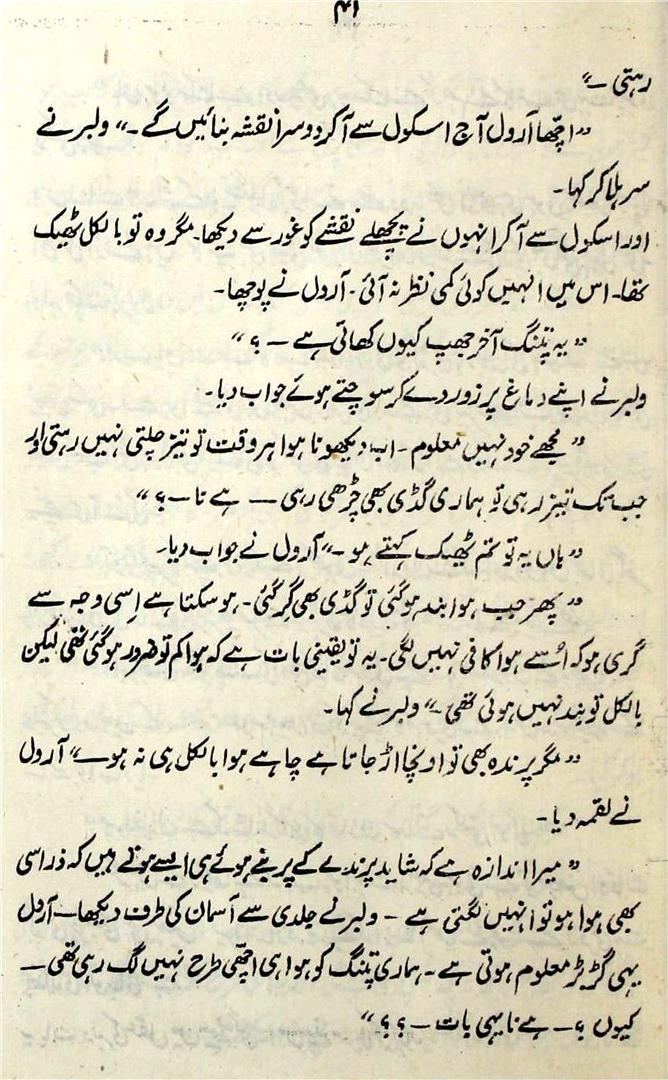 ۴۱
رہتی۔“
”اچھا آرول آج اسکول سے آ کر دوسرا نقشہ بنائیں گے۔“ ولبر نے
سر ہلا کر کہا۔
اور اسکول سے آ کر انہوں نے پچھلے نقشے کو غور سے دیکھا۔ مگر وہ تو بالکل ٹھیک
تھا۔ اس میں انہیں کوئی کمی نظر نہ آئی۔ آرول نے پوچھا۔
”یہ پتنگ آخر جھپ کیوں کھاتی ہے ۔ ؟“
ولبر نے اپنے دماغ پر زور دے کر سوچتے ہوئے جواب دیا۔
”مجھے خود نہیں معلوم۔ اب دیکھو نا ہوا ہر وقت تو تیز چلتی نہیں رہتی اور
جب تک تیز رہی تو ہماری گڈی بھی چڑھی رہی — ہے نا ۔ ؟“
”ہاں یہ تو تم ٹھیک کہتے ہو۔“ آرول نے جواب دیا۔
”پھر جب ہوا بند ہو گئی تو گڈی بھی گر گئی۔ ہو سکتا ہے اِسی وجہ سے
گری ہو کہ اُسے ہوا کافی نہیں لگی۔ یہ تو یقینی بات ہے کہ ہوا کم تو ضرور ہو گئی تھی لیکن
بالکل تو بند نہیں ہوئی تھی۔“ ولبر نے کہا۔
”مگر پرندہ بھی تو اونچا اڑ جاتا ہے چاہے ہوا بالکل ہی نہ ہو —“ آرول
نے لقمہ دیا۔
”میرا اندازہ ہے کہ شاید پرندے کے پر بنے ہوئے ہی ایسے ہوتے ہیں کہ ذرا سی
بھی ہوا ہو تو انہیں لگتی ہے — ولبر نے جلدی سے آسمان کی طرف دیکھا — آرول
یہی گڑبڑ معلوم ہوتی ہے۔ ہماری پتنگ کو ہوا ہی اچھی طرح نہیں لگ رہی تھی —
کیوں ؟ — ہے نا یہی بات — ؟ ؟“